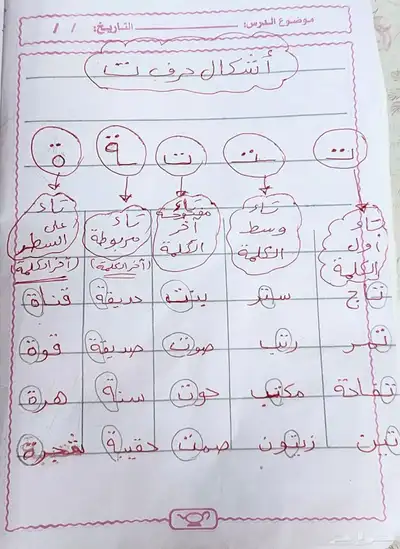 موضوع الدرس: التاريخ: / /
أشكال حرف ت
تـ ـتـ ت ـة ة
تاء أول الكلمة
تاء وسط الكلمة
تاء مفتوحة آخر الكلمة
تاء مربوطة (آخر الكلمة)
تاء على السطر (آخر الكلمة)
تاج ستر بنت حديقة قناة
تمر رتب صوت صديقة قوة
تفاحة مكتب حوت سنة هرة
تين زيتون صمت حقيبة شجرة